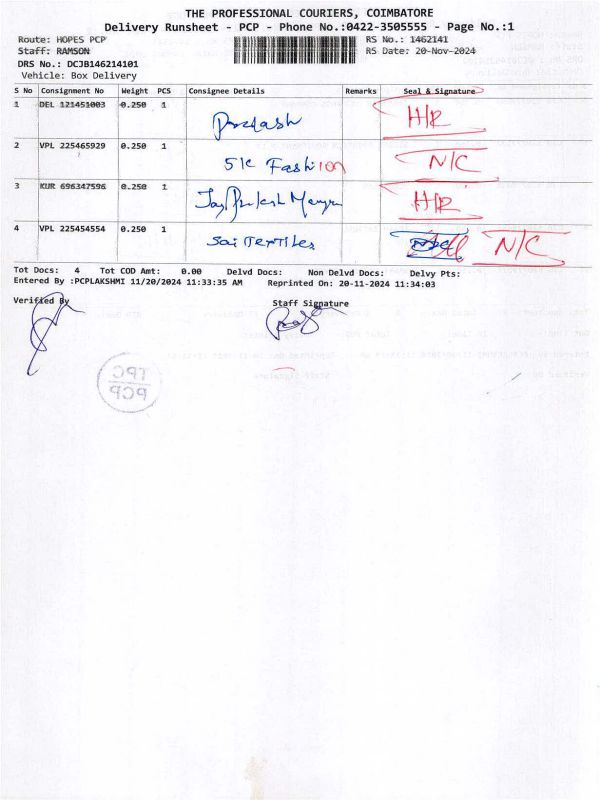 THE PROFESSIONAL COURIERS, COIMBATORE
Delivery Runsheet - PCP - Phone No.:0422-3505555 - Page No.:1
Route: HOPES PCP RS No.: 1462141
Staff: RAMSON RS Date: 20-Nov-2024
DRS No.: DCJB146214101
Vehicle: Box Delivery
S No Consignment No Weight PCS Consignee Details Remarks Seal & Signature
1 DEL 121451003 0.250 1 Prakash H/R
2 VPL 225465929 0.250 1 Fashion N/C
3 KUR 696347596 0.250 1 H/R
4 VPL 225454554 0.250 1 Sai Textiles N/C
Tot Docs: 4 Tot COD Amt: 0.00 Delvd Docs: Non Delvd Docs: Delvy Pts:
Entered By :PCPLAKSHMI 11/20/2024 11:33:35 AM Reprinted On: 20-11-2024 11:34:03
Verified By Staff Signature
TPC
PCP